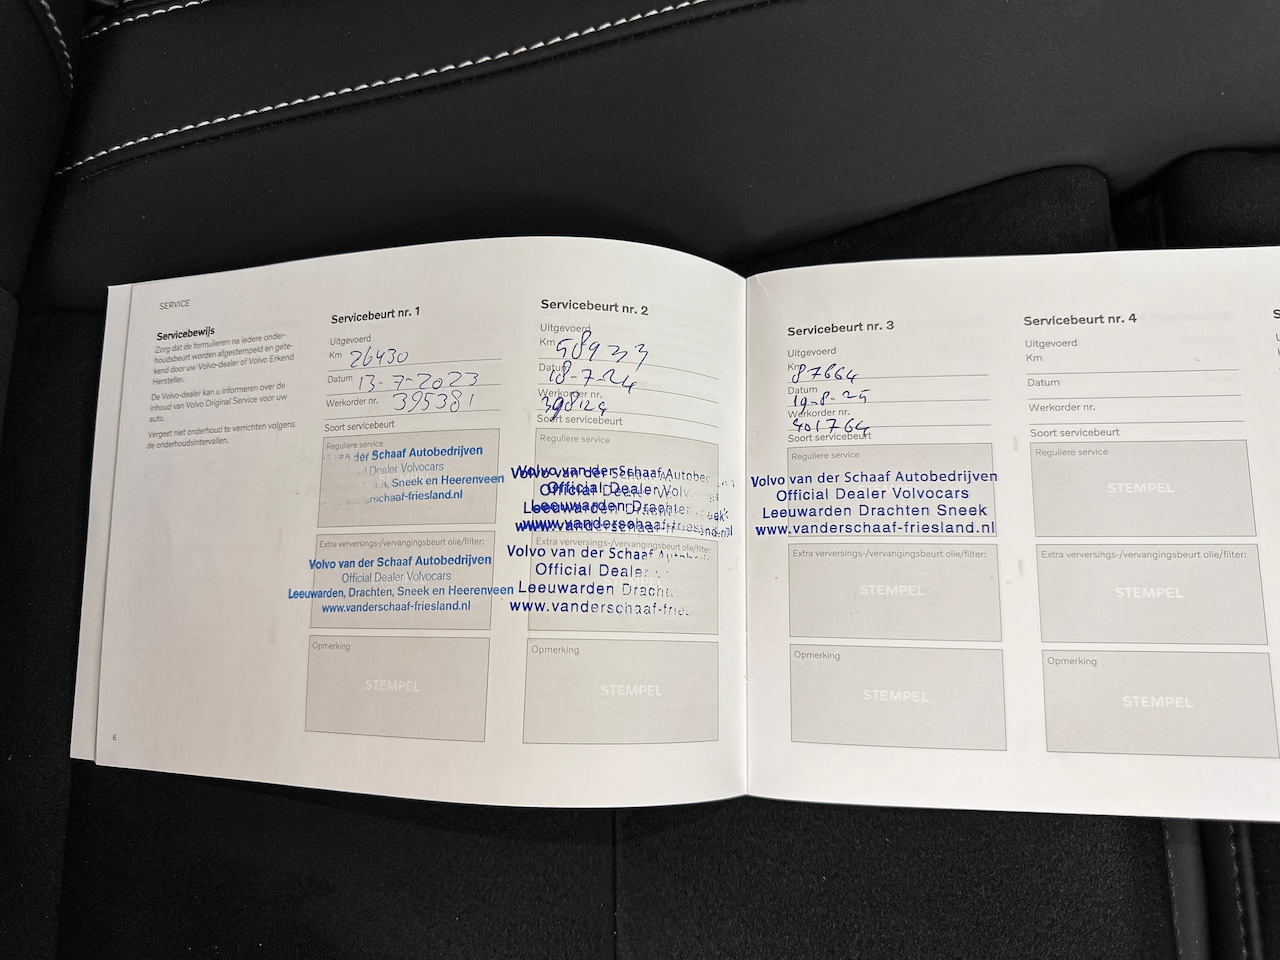 SERVICE
Servicebewijs
Zorg dat de formulieren na iedere onder-
houdsbeurt worden afgestempeld en gete-
kend door uw Volvo-dealer of Volvo Erkend
Hersteller.
De Volvo-dealer kan u informeren over de
inhoud van Volvo Original Service voor uw
auto.
Vergeet niet onderhoud te verrichten volgens
de onderhoudsintervallen.
6
Servicebeurt nr. 1
Uitgevoerd
Km 26430
Datum 13-7-2023
Werkorder nr. 395381
Soort servicebeurt
Reguliere service
der Schaaf Autobedrijven
Dealer Volvocars
Sneek en Heerenveen
erschaaf-friesland.nl
Extra verversings-/vervangingsbeurt olie/filter:
Volvo van der Schaaf Autobedrijven
Official Dealer Volvocars
Leeuwarden, Drachten, Sneek en Heerenveen
www.vanderschaaf-friesland.nl
Opmerking
STEMPEL
Servicebeurt nr. 2
Uitgevoerd
Km 58933
Datum 18-7-24
Werkorder nr.
Soort servicebeurt
Reguliere service
Volvo van der Schaaf Autobe
Official Deale
Leeuwarden Drachten
www.vanderschaaf-friesland.nl
Extra verversings-/vervangingsbeurt olie/filter:
Volvo van der Schaaf
Official Deale
STEMPEL
Leeuwarden Dracht
www.vanderschaaf-frie
Opmerking
STEMPEL
Servicebeurt nr. 3
Uitgevoerd
Km 87664
Datum 19-8-25
Werkorder nr. 401764
Soort servicebeurt
Reguliere service
Volvo van der Schaaf Autobedrijven
Official Dealer Volvocars
Leeuwarden Drachten Sneek
www.vanderschaaf-friesland.nl
Extra verversings-/vervangingsbeurt olie/filter:
STEMPEL
Opmerking
STEMPEL
Servicebeurt nr. 4
Uitgevoerd
Km
Datum
Werkorder nr.
Soort servicebeurt
Reguliere service
STEMPEL
Extra verversings-/vervangingsbeurt olie/filter:
STEMPEL
Opmerking
STEMPEL